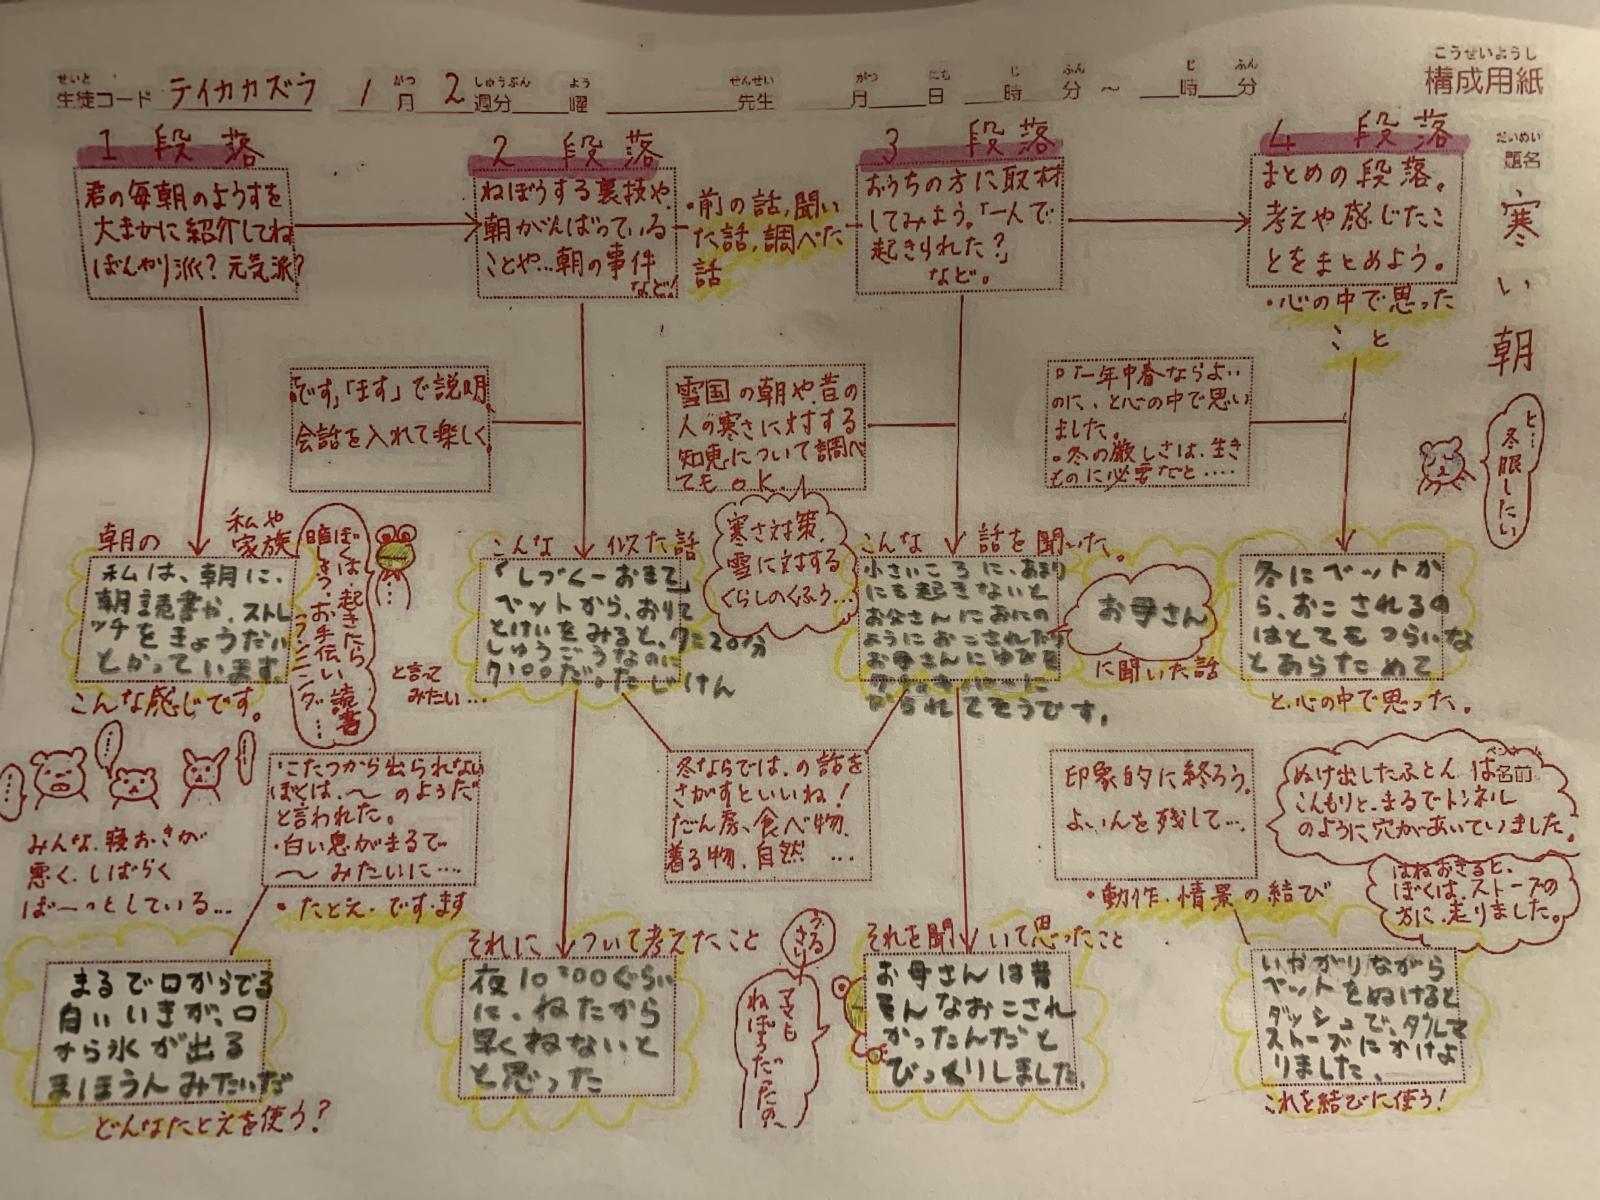 こうせいようし
構成用紙
せいと がつ しゅうぶん よう せんせい がつ にち じ ふん じ ふん
生徒コード テイカカズラ 1月 2週分 曜 先生 月 日 時 分 ～ 時 分
だいめい
題名
寒い朝
1 段落
君の毎朝のようすを
大まかに紹介してね
ぼんやり派？元気派？
2 段落
ねぼうする裏技や、
朝がんばっている
ことや…朝の事件
など！
・前の話、聞い
た話、調べた
話
3 段落
おうちの方に取材
してみよう。「一人で
起きられた？」
など。
4 段落
まとめの段落。
考えや感じたこ
とをまとめよう。
・心の中で思った
こと
「です」「ます」で説明
会話を入れて楽しく
雪国の朝や、昔の
人の寒さに対する
知恵について調べ
てもOK。
。「一年中春ならよい
のに、と心の中で思い
ました。
。冬の厳しさは、生き
ものに必要だと……
ヒ…
冬眠したい
朝の 私や
家族
私は、朝に、
朝読書や、ストレ
ッチをきょうだい
とやっています。
こんな感じです。
ぼくは、起きたら
お手伝い、読書
ランニング…
と言って
みたい…
こんな 似た話
「しづくーおきて」
ベットから、おりて
とけいをみると、7:20分
しゅうごうなのに
7:00だ。たじけん
寒さ対策、
雪に対する
くらしのくふう…
こんな 話を聞いた。
小さいころに、あまり
にも起きないと
お父さんにおにの
ようにおこされたり
お母さんに
られてそうです。
お母さん
に聞いた話
冬にベットか
ら、おこされるの
はとてもつらいな
とあらためて
と、心の中で思った。
みんな、寝おきが
悪く、しばらく
ぼーっとしている…
・こたつから出られない
ぼくは、～のようだ
と言われた。
・白い息がまるで
～みたいに…
・たとえ・です・ます
冬ならでは、の話を
さがすといいね！
だん房、食べ物、
着る物、自然 …
印象的に終ろう。
よいんを残して…
・動作・情景の結び
名前
ぬけ出したふとんは
こんもりと、まるでトンネル
のように穴があいていました。
はねおきると、
ぼくは、ストーブの
方に、走りました。
まるで口からでる
白いいきが、口
から氷が出る
まほうみたいだ
どんなたとえを使う？
それについて考えたこと
夜10:00ぐらい
に、ねたから
早くねないと
と思った
うるさい
ママも
ねぼうだったの～
それを聞いて思ったこと
お母さんは昔
そんなおこされ
かったんだと
びっくりしました。
いやがりながら
ベットをぬけると
ダッシュで、
ストーブにかけよ
りました。
これを結びに使う！